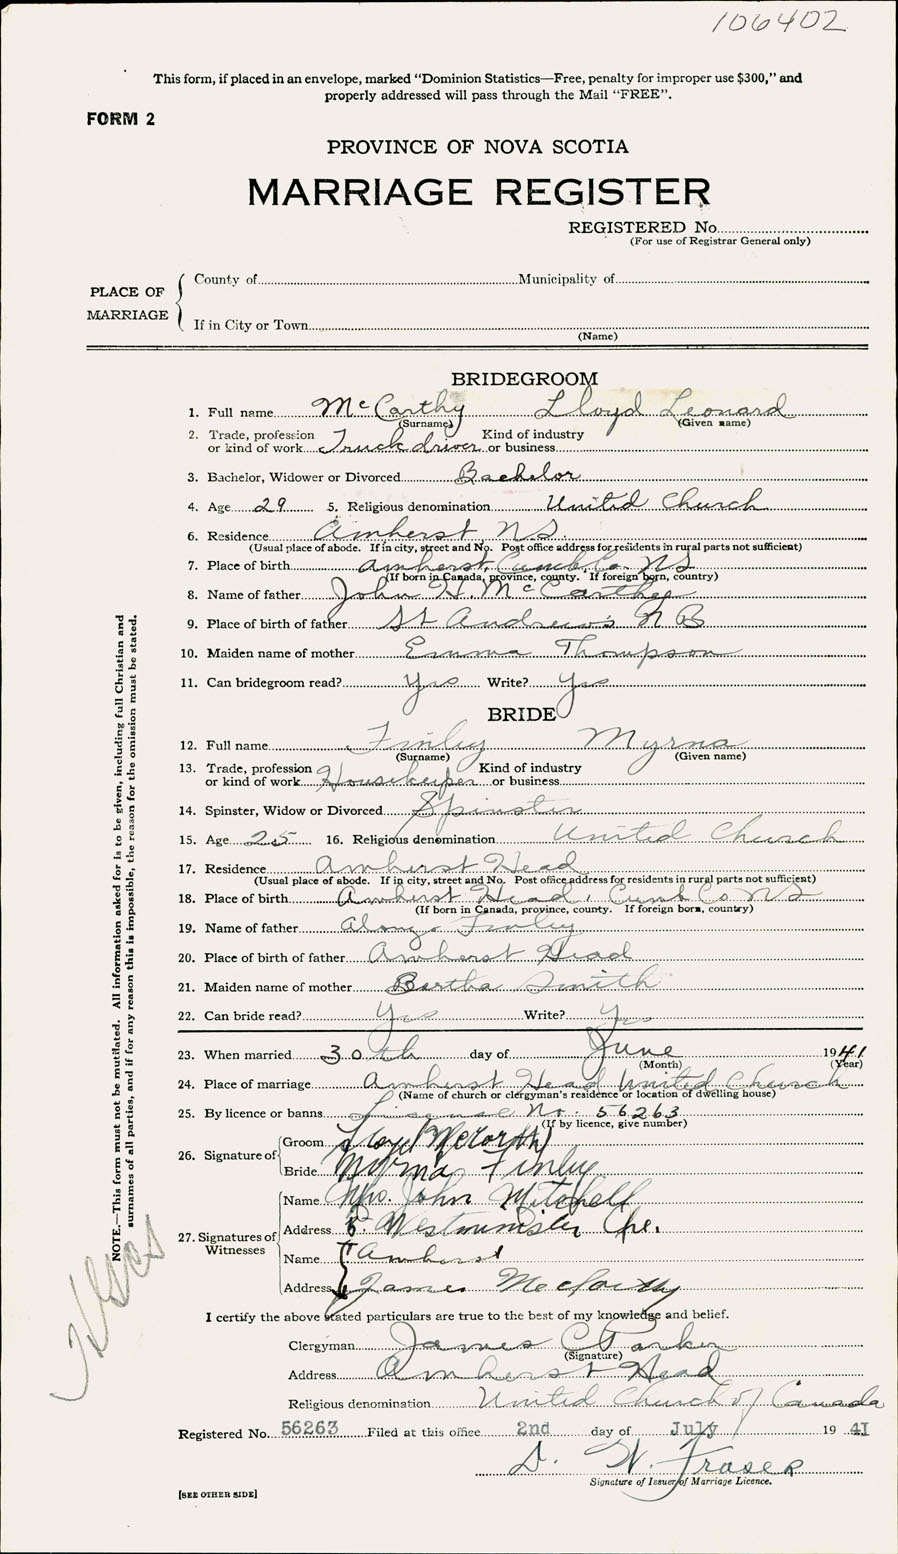 106402
This form, if placed in an envelope, marked "Dominion Statistics—Free, penalty for improper use $300," and
properly addressed will pass through the Mail "FREE".
FORM 2
PROVINCE OF NOVA SCOTIA
MARRIAGE REGISTER
REGISTERED No.
(For use of Registrar General only)
PLACE OF MARRIAGE
County of Municipality of
If in City or Town
(Name)
BRIDEGROOM
1. Full name McCarthy Lloyd Leonard
(Surname) (Given name)
2. Trade, profession Kind of industry
or kind of work Truck driver or business
3. Bachelor, Widower or Divorced Bachelor
4. Age 29 5. Religious denomination United Church
6. Residence Amherst N.S.
(Usual place of abode. If in city, street and No. Post office address for residents in rural parts not sufficient)
7. Place of birth Amherst, Cumb. Co. NS
(If born in Canada, province, county. If foreign born, country)
8. Name of father John H. McCarthy
9. Place of birth of father St Andrew's N B
10. Maiden name of mother Emma Thompson
11. Can bridegroom read? Yes Write? Yes
BRIDE
12. Full name Finley Myrna
(Surname) (Given name)
13. Trade, profession Kind of industry
or kind of work Housekeeper or business
14. Spinster, Widow or Divorced Spinster
15. Age 25 16. Religious denomination United Church
17. Residence Amherst Head
(Usual place of abode. If in city, street and No. Post office address for residents in rural parts not sufficient)
18. Place of birth Amherst Head, Cumb Co NS
(If born in Canada, province, county. If foreign born, country)
19. Name of father Alonzo Finley
20. Place of birth of father Amherst Head
21. Maiden name of mother Bertha Smith
22. Can bride read? Yes Write? Yes
23. When married 30th day of June 1941
(Month) (Year)
24. Place of marriage Amherst Head United Church
(Name of church or clergyman's residence or location of dwelling house)
25. By licence or banns License No. 56263
(If by licence, give number)
26. Signature of Groom Lloyd McCarthy
Bride Myrna Finley
27. Signatures of Witnesses
Name Mrs. John Mitchell
Address Westminister Ave.
Name Amherst
Address James McCarthy
I certify the above stated particulars are true to the best of my knowledge and belief.
Clergyman James C Parker
(Signature)
Address Amherst Head
Religious denomination United Church of Canada
Registered No. 56263 Filed at this office 2nd day of July 19 41
D. W. Fraser
Signature of Issuer of Marriage Licence.
[SEE OTHER SIDE]
NOTE.—This form must not be mutilated. All information asked for is to be given, including full Christian and
surnames of all parties, and if for any reason this is impossible, the reason for the omission must be stated.